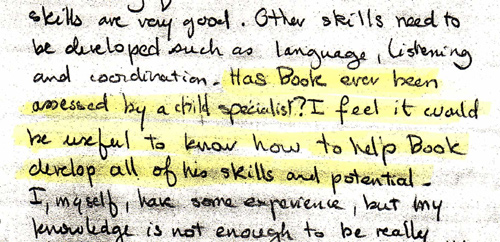 skills are very good. Other skills need to
be developed such as language, listening
and coordination. Has Book ever been
assessed by a child specialist? I feel it would
be useful to know how to help Book
develop all of his skills and potential.
I, myself, have some experience, but my
knowledge is not enough to be really